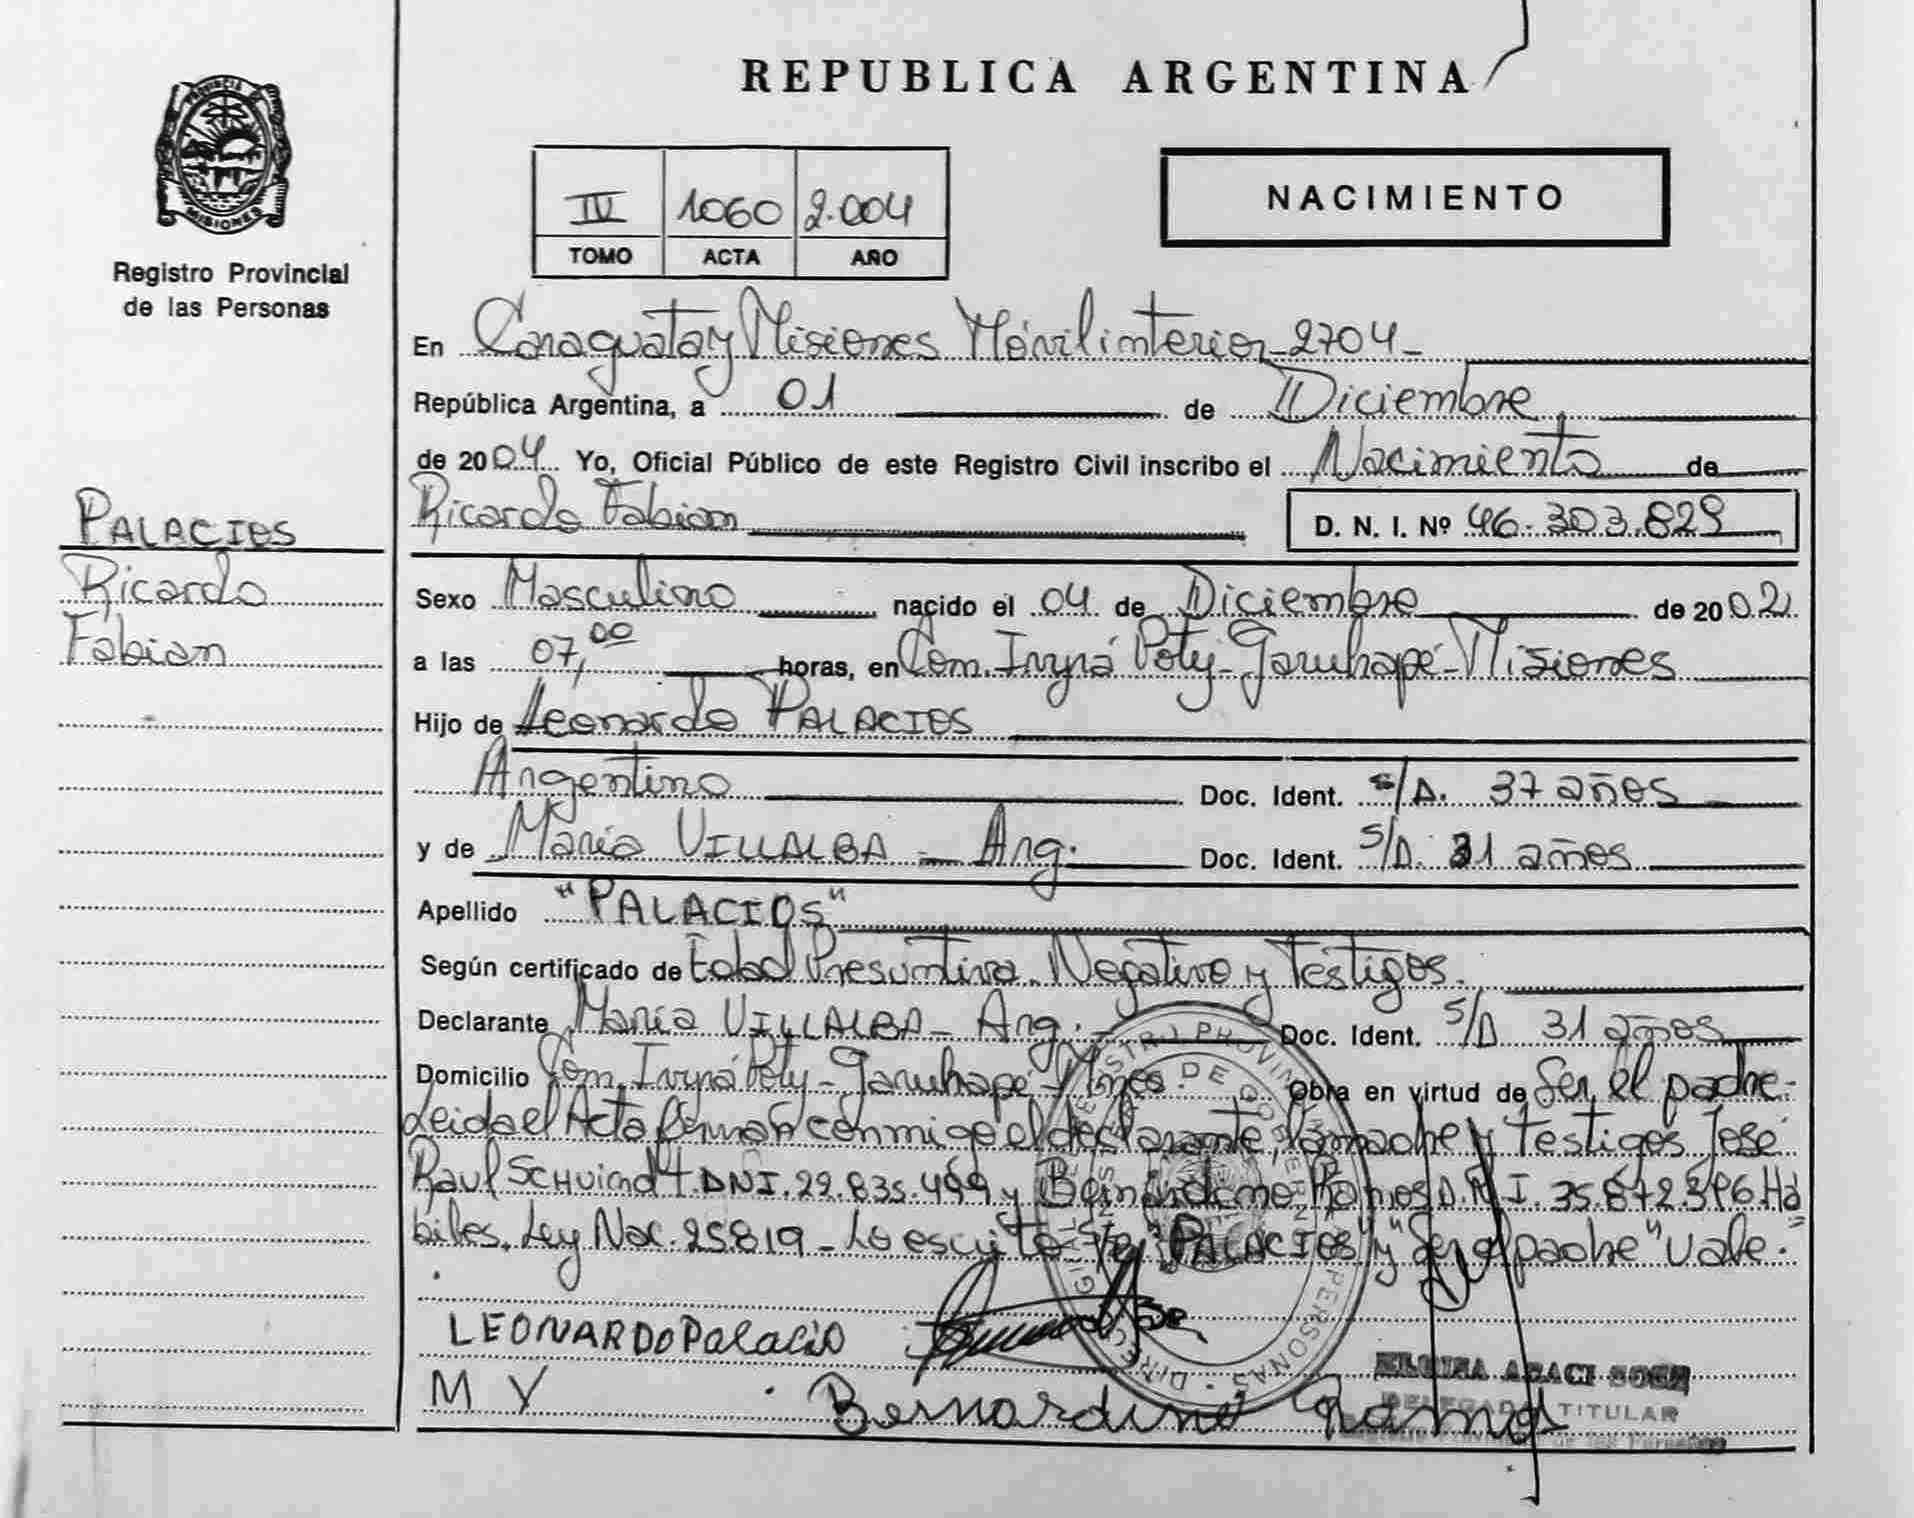 REPUBLICA ARGENTINA
PROVINCIA DE
MISIONES
Registro Provincial
de las Personas
IV 1060 2.004
TOMO ACTA AÑO
NACIMIENTO
En Caraguatay Misiones Móvil interior - 2704 -
República Argentina, a 01 de Diciembre
de 2004 Yo, Oficial Público de este Registro Civil inscribo el Nacimiento de
Ricardo Fabian D. N. I. Nº 46.303.829
PALACIOS
Ricardo
Fabian
Sexo Masculino nacido el 04 de Diciembre de 2002
a las 07,00 horas, en Com. Ivyrá Poty - Garuhapé - Misiones
Hijo de Leonardo PALACIOS
Argentino Doc. Ident. s/D. 37 años
y de María VILLALBA - Arg. Doc. Ident. S/D. 31 años
Apellido "PALACIOS"
Según certificado de Edad Presuntiva. Negativo y Testigos.
Declarante María VILLALBA - Arg. - Doc. Ident. S/D 31 años
Domicilio Com. Ivyrá Poty - Garuhapé - Mnes. Obra en virtud de Ser el padre.
Leida el Acta firman conmigo el declarante, la madre y testigos José
Raul SCHVindt. DNI. 29.835.499 y Bernardino Ramos D.N.I. 35.872.396. Há
biles. Ley Nac. 25819 - Lo escrito s/r "PALACIOS" y "Ser el padre" vale."
LEONARDO Palacio
M V
Bernardino Ramos
DELEGADA TITULAR